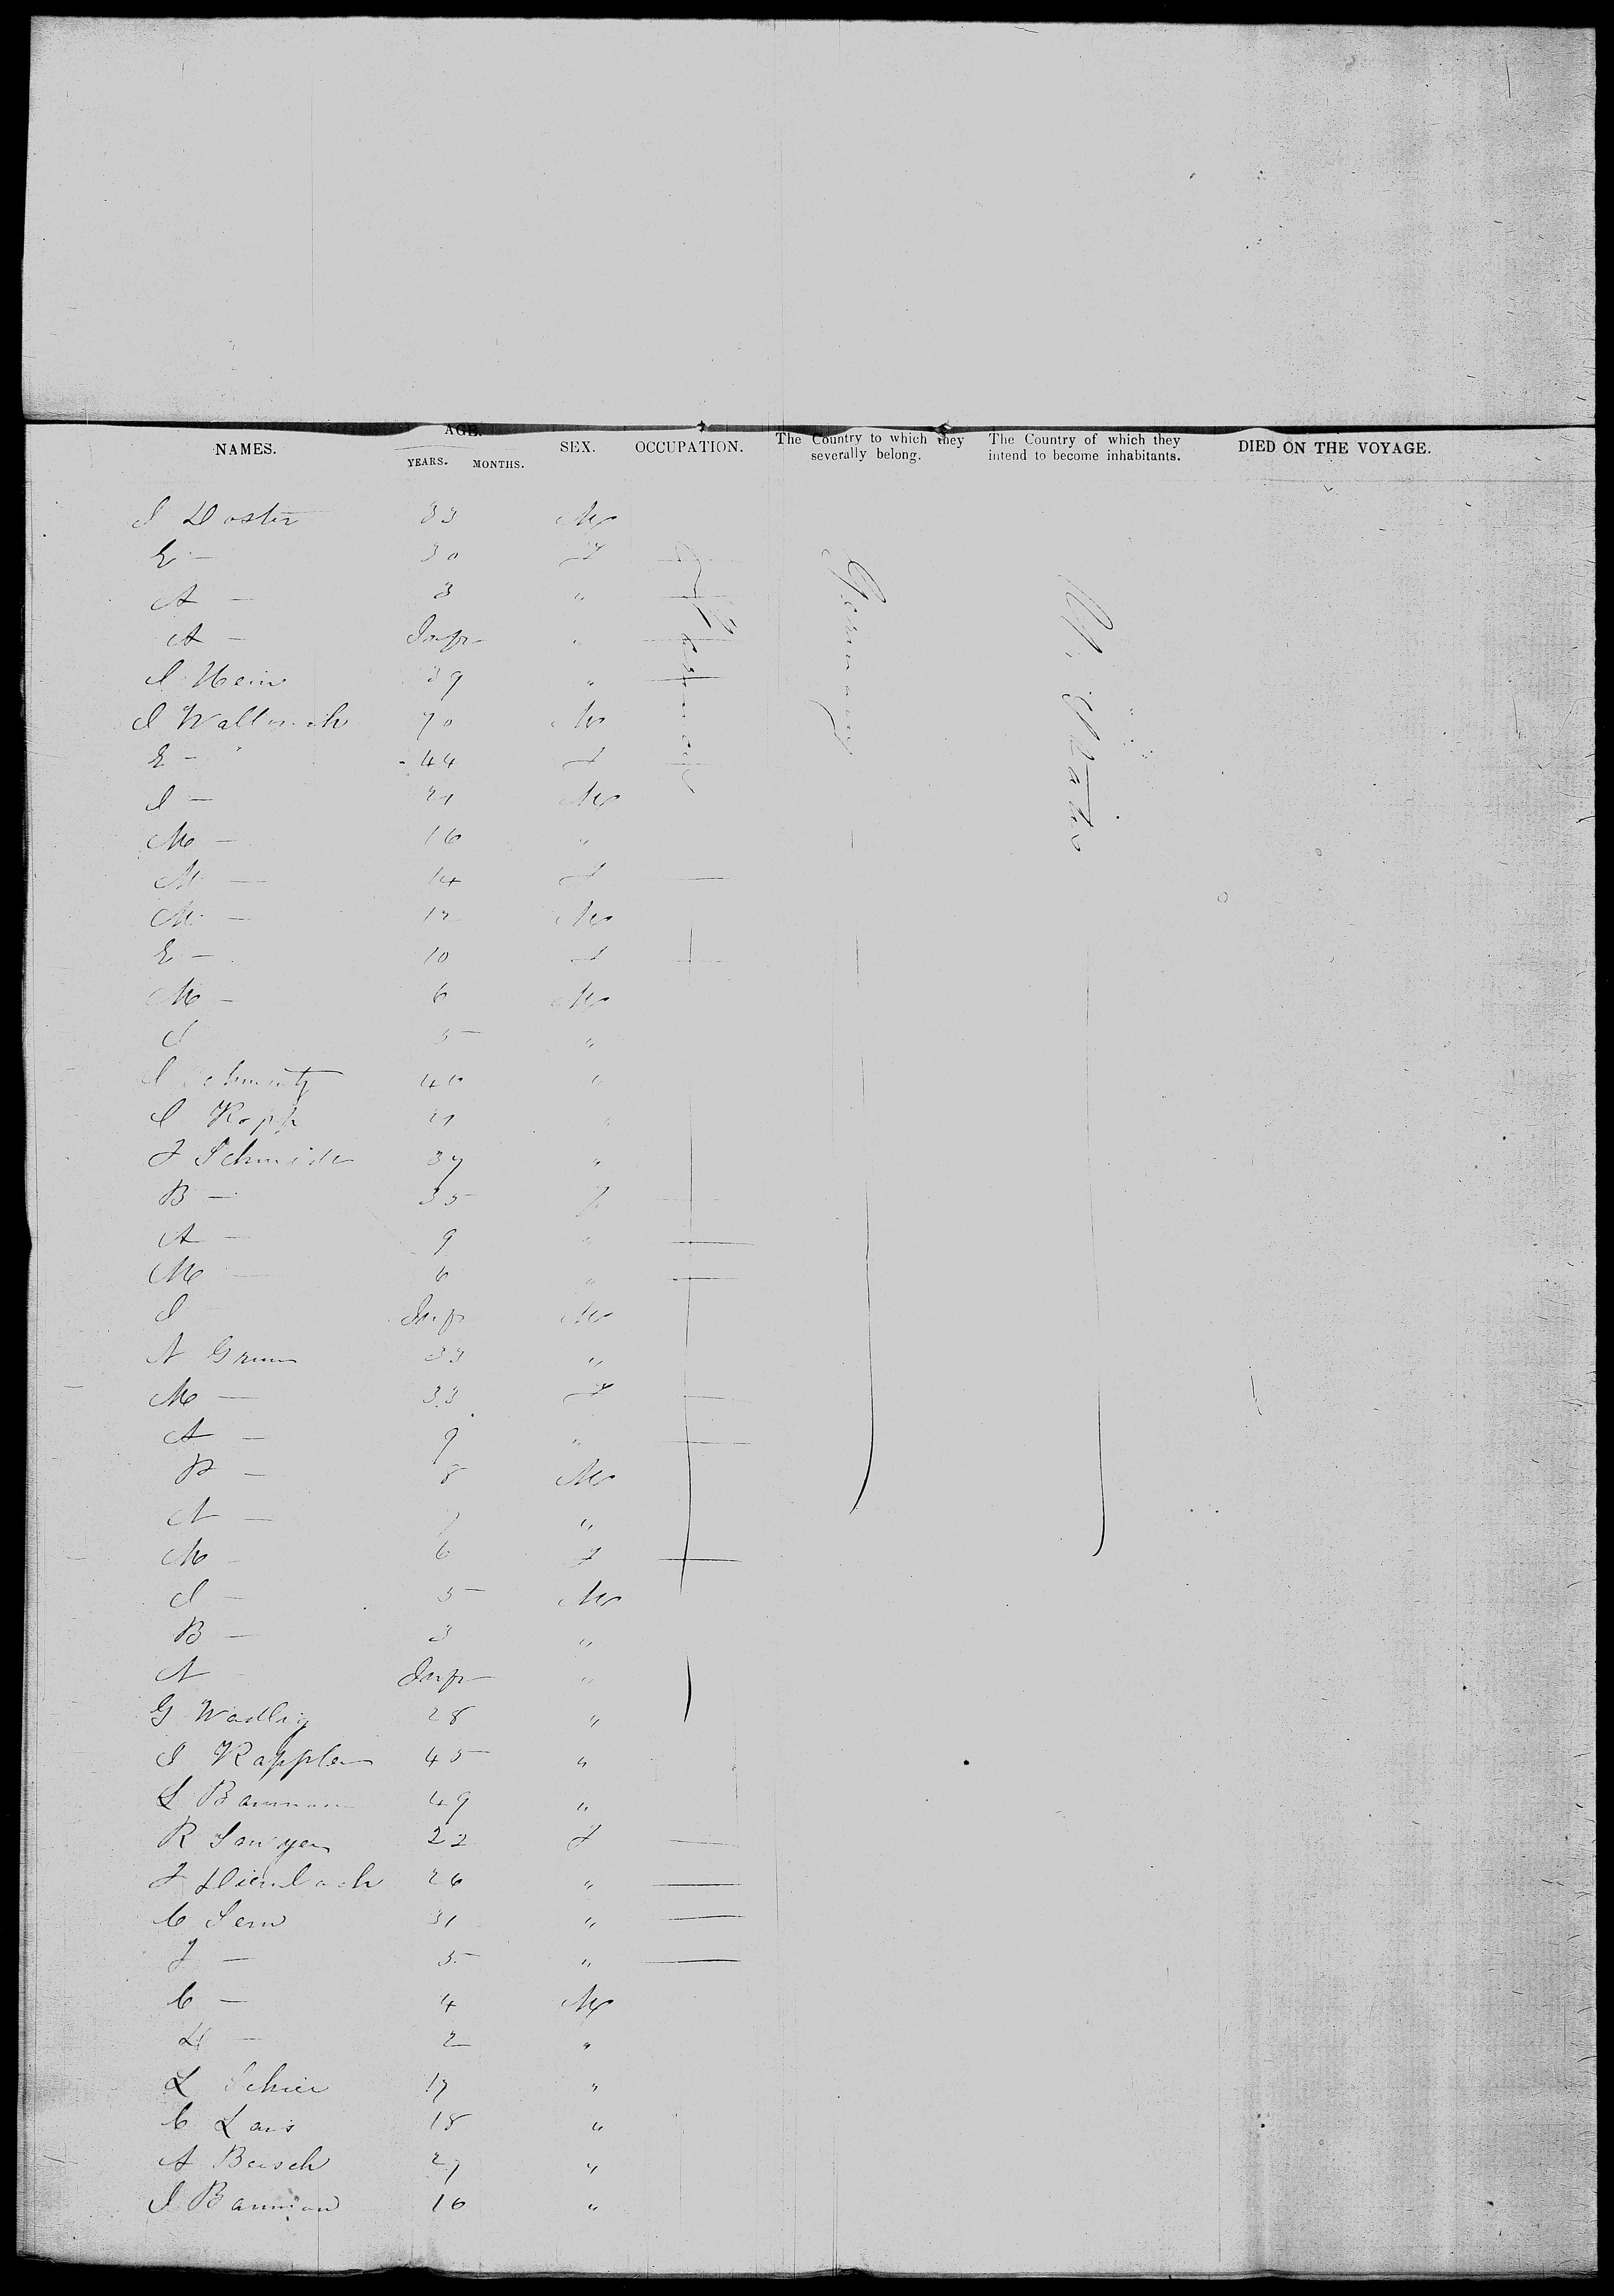 NAMES. AGE. YEARS. MONTHS. SEX. OCCUPATION. The Country to which they severally belong. The Country of which they intend to become inhabitants. DIED ON THE VOYAGE.
I Doster 33 M
E — 30 F
A — 3 "
A — Inft "
I Hein 39 "
I 70 M
E — 44 F
I — 21 M
M — 16 "
M — 14 F
M — 12 M
E — 10 F
M — 6 M
5 "
I 40 "
I Kopp 21 "
F Schmidt 37 "
B — 35 F
A — 9 "
M — 6 "
I — Inft M
N 33 "
M — 33 F
A — 9 "
P — 8 M
N — 7 "
M — 6 F
I — 5 M
B — 3 "
N — Inft "
G 28 "
I Kappler 45 "
L Bauman 49 "
R Sawyer 22 F
F 26 "
C 31 "
F — 5 "
C — 4 M
D — 2 "
L Schier 17 "
C Laus 18 "
A Beisch 27 "
I Bauman 16 "
Germany
U. States